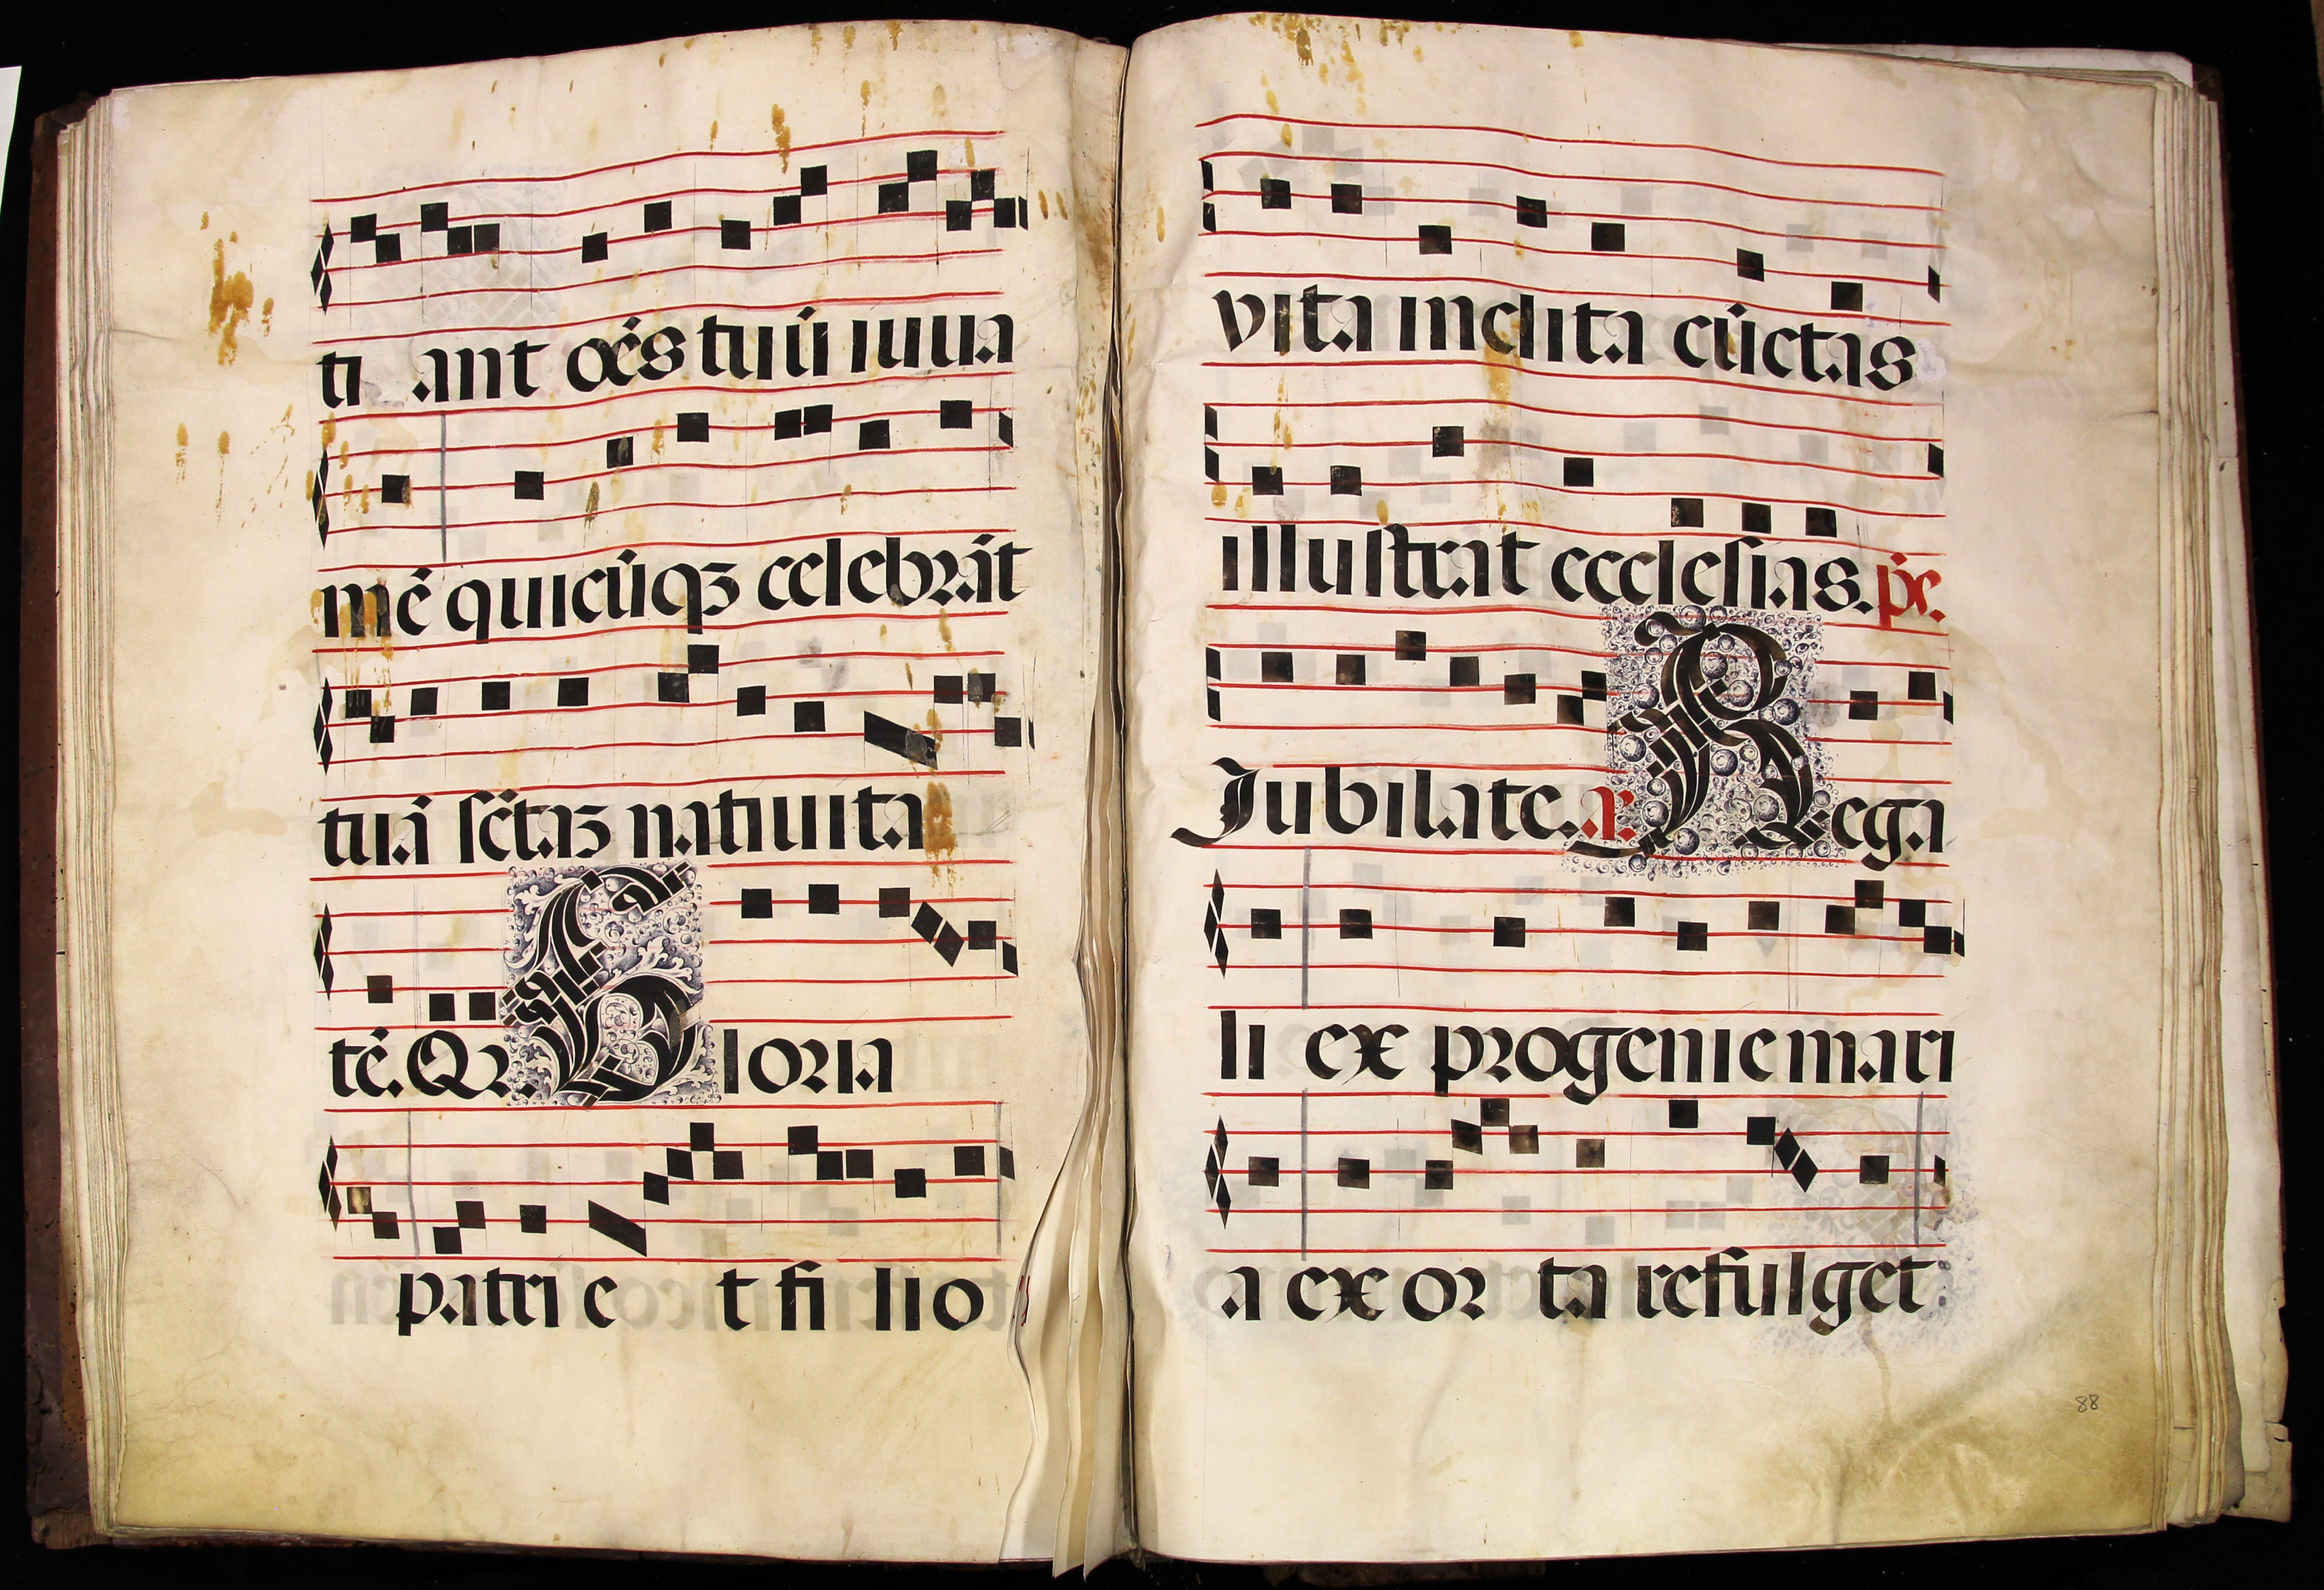 ti ant oēs tuū iuua
mē quicūqꝫ celebrāt
tuā sctāꝫ natiuita
tē. Qr. Gloria
patri e t fi lio
vita inclita cūctas
illustrat ecclesias. ps.
Jubilate. a. Rega
li ex progenie mari
a ex or ta refulget:
88